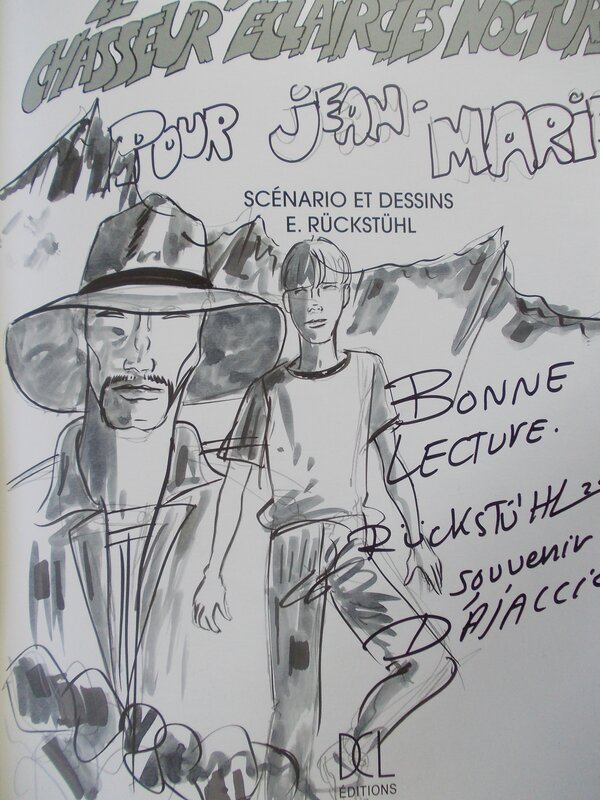 LE
CHASSEUR D'ÉCLAIRCIES NOCTUR
POUR JEAN-MARIE
SCÉNARIO ET DESSINS
E. RÜCKSTÜHL
BONNE
LECTURE.
RÜCKSTÜHL
souvenir
D'AJACCIO
DCL
ÉDITIONS